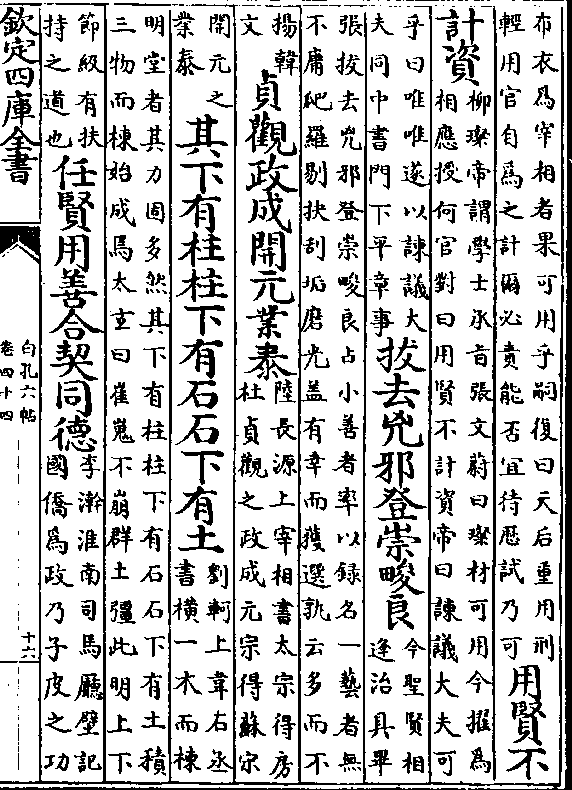 布衣為宰相者果可用乎嗣復曰天后重用刑
輕用官自為之計爾必責能否宜待歷試乃可
用賢不
計資
柳璨帝謂學士承旨張文蔚曰璨材可用今擢為
相應授何官對曰用賢不計資帝曰諫議大夫可
乎曰唯唯遂以諫議大
夫同中書門下平章事
拔去兇邪登崇畯良
今聖賢相
逢治具畢
張拔去兇邪登崇畯良占小善者率以録名一藝者無
不庸爬羅剔抉刮垢磨光蓋有幸而獲選孰云多而不
揚韓
文
貞觀政成開元業泰
陸長源上宰相書太宗得房
杜貞觀之政成元宗得蘇宋
開元之
業泰
其下有柱柱下有石石下有土
劉軻上韋右丞
書橫一木而棟
明堂者其力固多然其下有柱柱下有石石下有土積
三物而棟始成焉太玄曰崔嵬不崩群土彊此明上下
節級有扶
持之道也
任賢用善合契同德
李瀚淮南司馬廳壁記
國僑為政乃子皮之功
欽定四庫全書
白孔六帖
卷四十四
十六